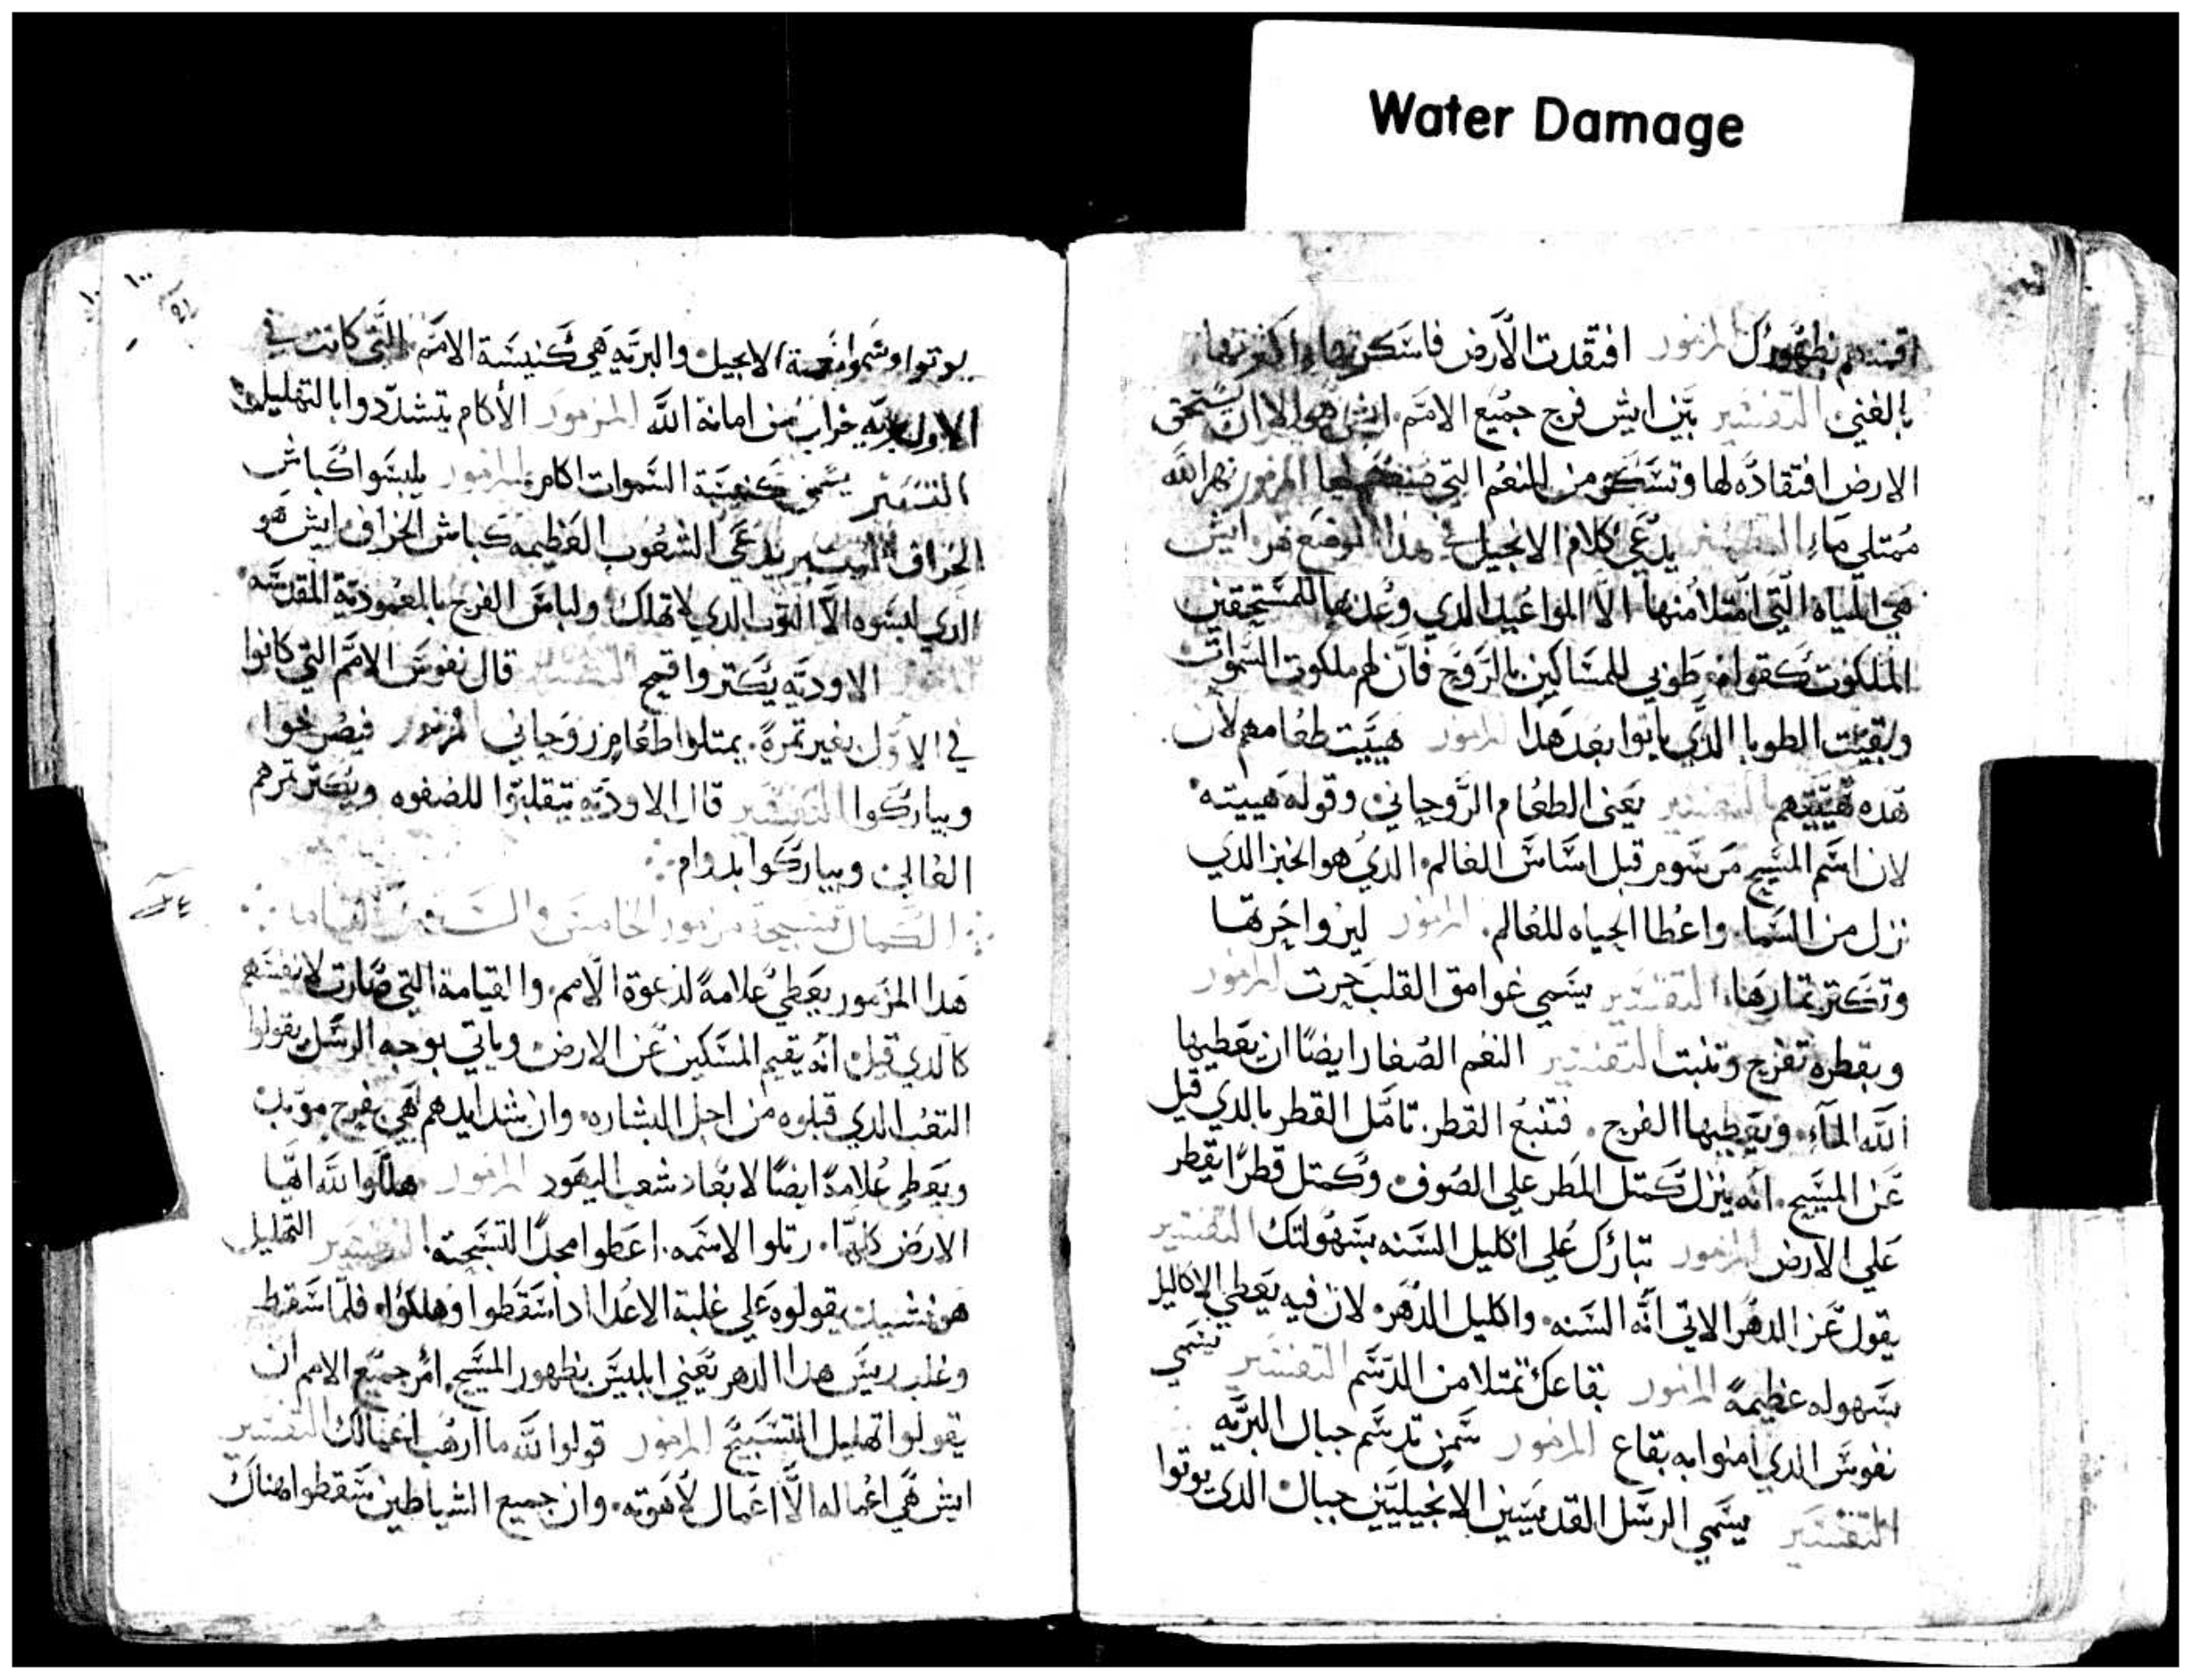 Water Damage
بظهورك المزمور افتقدت الأرض فاسكرتها واكثرتها
بالغني التفسير بين ايش فرح جميع الامم ايش هو الا ان يستحق
الارض افتقاده لها وتسكر من النعم التي المزمور نهر الله
ممتلي ماء التفسير يدعي كلام الانجيل في هدا الموضع نهر ايش
هي المياه التي امتلا منها الا المواعيد الدي وعد بها للمستحقين
الملكوت كقوله طوبي للمساكين بالروح فان لهم ملكوت السموات
وبقيت الطوبا الدي ياتوا بعد هدا المزمور هييت طعامهم لان
هده تهييتهم التفسير يعني الطعام الروحاني وقوله هييته
لان اسم المسيح مرسوم قبل اساس العالم الدي هو الخبز الدي
نزل من السما واعطا الحياه للعالم المزمور ليروا حرتها
وتكتر تمارها التفسير يسمي غوامق القلب حرت المزمور
وبقطره تفرح وتنبت التفسير النعم الصغار ايضا ان يعطيها
الله الماء ويعطيها الفرح فتنبع القطر تامل القطر بالدي قيل
عن المسيح انه ينزل كمتل المطر علي الصوف وكمتل قطرا يقطر
علي الارض المزمور تبارك علي اكليل السنه بسهولتك التفسير
يقول عن الدهر الاتي انه السنه واكليل الدهر لان فيه يعطي الاكاليل
بسهوله عظيمة المزمور بقاعك تمتلا من الدسم التفسير يسمي
نفوس الدي امنوا به بقاع المزمور سمن تدسم جبال البريه
التفسير يسمي الرسل القديسين الانجيليين جبال الدي يوتوا
١٠٠
يوتوا وسموا نعمة الانجيل والبريه هي كنيسة الامم التي كانت في
الاول بريه خراب من امانة الله المزمور الأكام يتشددوا بالتهليل
التفسير يسمي كنيسة السموات اكام المزمور يلبسوا كباش
الخراف التفسير يدعي الشعوب العظيمه كباش الخراف ايش هو
الدي لبسوه الا التوب الدي لا تهلك ولباس الفرح بالمعموديه المقدسه
المزمور الاوديه يكتروا قمح التفسير قال نفوس الامم التي كانوا
في الاول بغير تمرة يمتلوا طعام روحاني المزمور فيصرخوا
ويباركوا التفسير قال الاوديه يتقلبوا للصفوه ويكتر تمرهم
العالي ويباركوا بدوام
الكمال تسبحة مزمور الخامس والستين القيامه
هدا المزمور يعطي علامة لدعوة الامم والقيامة التي صارت لانفسهم
كالدي قيل انه يقيم المسكين عن الارض وياتي بوجه الرسل يقولوا
التعب الدي قبلوه من اجل البشاره وان شدايدهم هي بفرح موبد
ويعطي علامة ايضا لابعاد شعب اليهود المزمور هللوا لله ايها
الارض كلها رتلوا لاسمه اعطوا مجدا لتسبحته التفسير التهليل
هو نشيد يقولوه علي غلبة الاعدا ادا سقطوا وهلكوا فلما سقط
وغلب ريس هدا الدهر يعني ابليس بظهور المسيح امر جميع الامم ان
يقولوا تهليل التسبيح المزمور قولوا لله ما ارهب اعمالك التفسير
ايش هي اعماله الا اعمال لاهوته وان جميع الشياطين سقطوا هناك